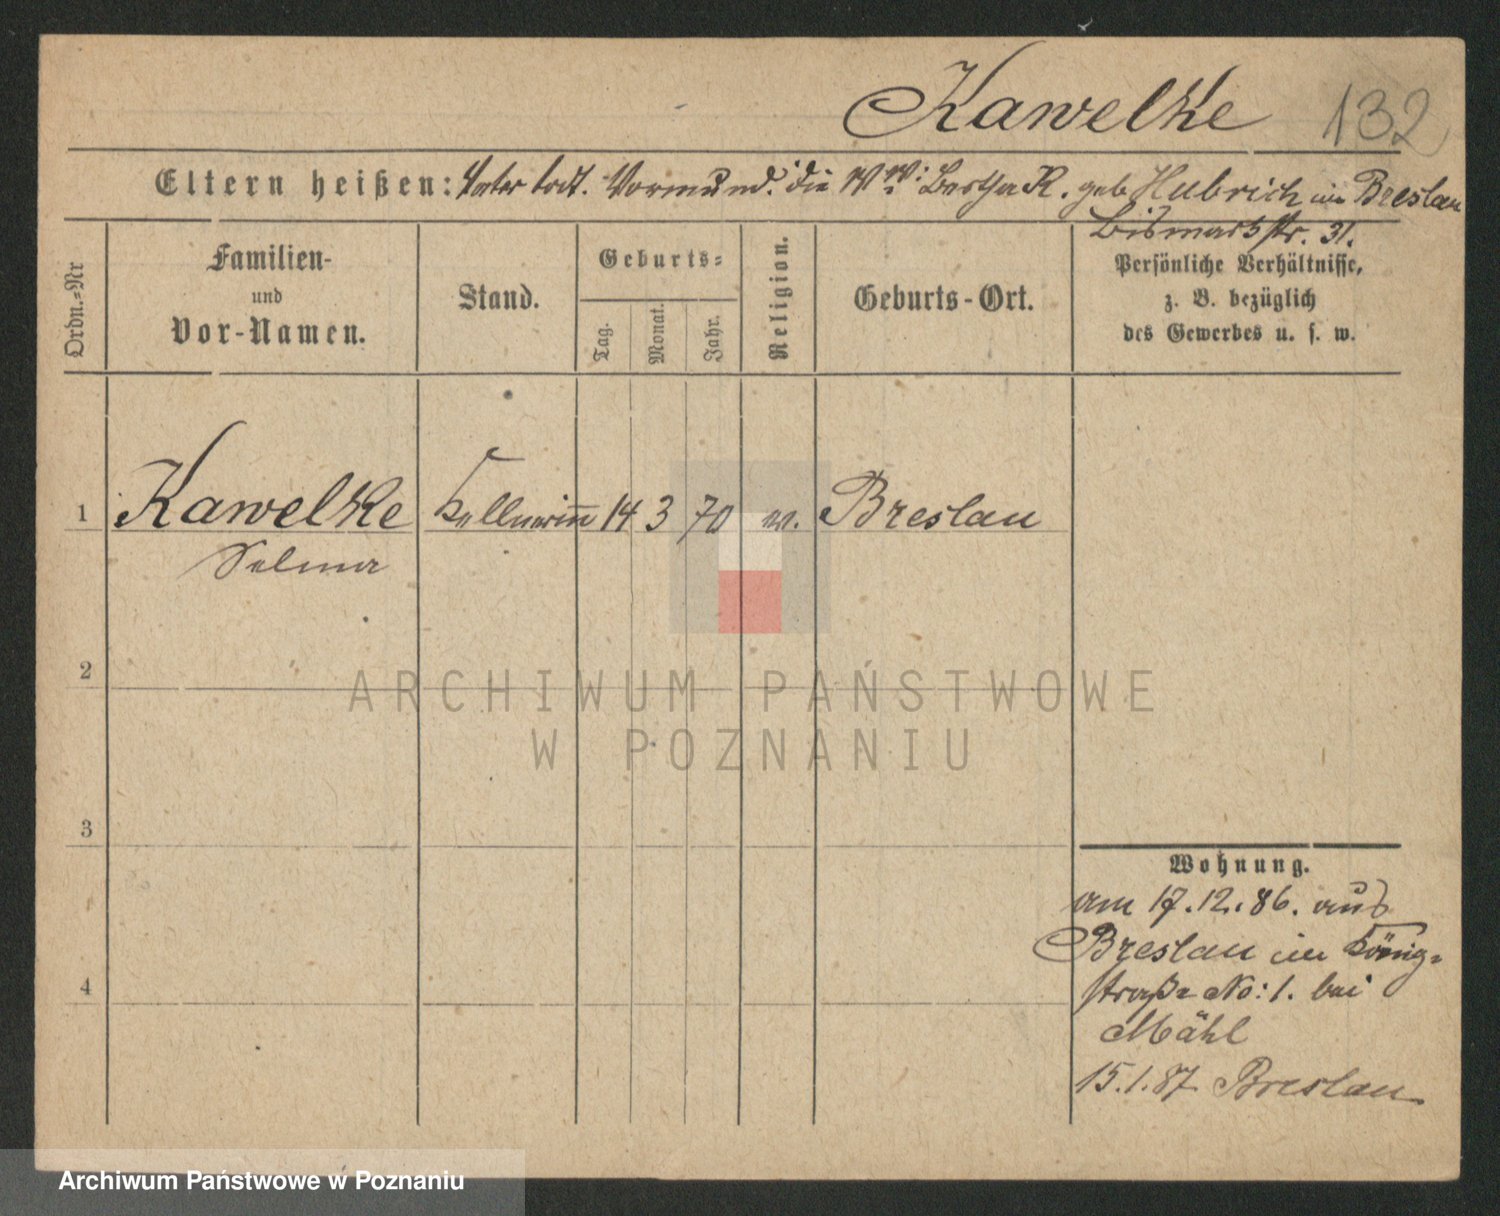 Kawelke 132
Eltern heißen: Vater todt. Vormund: die Ww: Bertha K. geb Hubrich in Breslau
Bismarkstr. 31.
Ordn.=Nr
Familien-
und
Vor-Namen.
Stand.
Geburts=
Tag.
Monat.
Jahr.
Religion.
Geburts-Ort.
Persönliche Verhältnisse,
z. B. bezüglich
des Gewerbes u. s. w.
1 Kawelke Kellnerin 14 3 70 ev. Breslau
Selma
2
ARCHIWUM PAŃSTWOWE
W POZNANIU
3
Wohnung.
am 17.12.86. aus
Breslau in König=
straße No: 1. bei
4
Mähl
15.1.87 Breslau
Archiwum Państwowe w Poznaniu